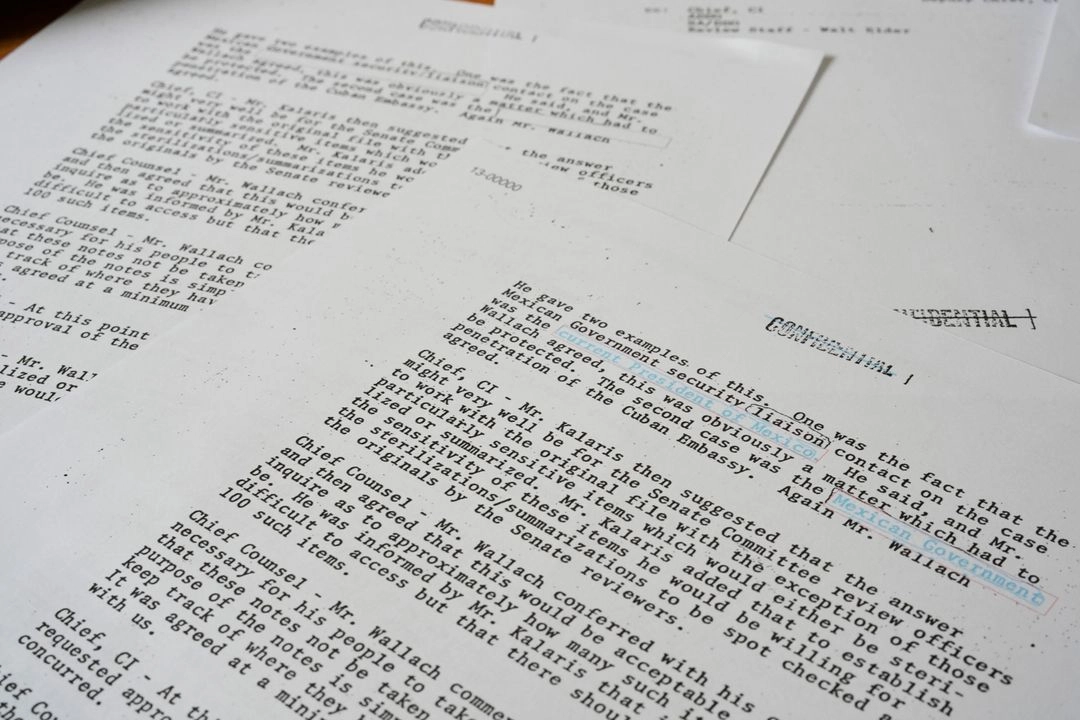 Chief, CI
ADDO
SA/DDO
Review Staff - Walt Elder
Deputy Chief, C
CONFIDENTIAL
He gave two examples of this. One was the fact that the
Mexican Government security/liaison contact on the case
was the He said, and Mr.
Wallach agreed, this was obviously a matter which had to
be protected. The second case was the
penetration of the Cuban Embassy. Again Mr. Wallach
agreed.
Chief, CI - Mr. Kalaris then suggested the answer
might very well be for the Senate Comm iew officers
to work with the original file with th those
particularly sensitive items which wo
lized or summarized. Mr. Kalaris ad
the sensitivity of these items he wo
the sterilizations/summarizations t
the originals by the Senate reviewe
Chief Counsel - Mr. Wallach confer
and then agreed that this would b
inquire as to approximately how
be. He was informed by Mr. Kala
difficult to access but that the
100 such items.
Chief Counsel - Mr. Wallach co
necessary for his people to t
at these notes not be taken
pose of the notes is simp
track of where they hav
agreed at a minimum
- At this point
approval of the
- Mr. Wal
lized or
e woul
CONFIDENTIAL
13-00000
CONFIDENTIAL
He gave two examples of this. One was the fact that the
Mexican Government security/liaison contact on the case
was the current President of Mexico. He said, and Mr.
Wallach agreed, this was obviously a matter which had to
be protected. The second case was the Mexican Government
penetration of the Cuban Embassy. Again Mr. Wallach
agreed.
Chief, CI - Mr. Kalaris then suggested that the answer
might very well be for the Senate Committee review officers
to work with the original file with the exception of those
particularly sensitive items which would either be steri-
lized or summarized. Mr. Kalaris added that to establish
the sensitivity of these items he would be willing for
the sterilizations/summarizations to be spot checked
the originals by the Senate reviewers.
Chief Counsel - Mr. Wallach conferred with his
and then agreed that this would be acceptable
inquire as to approximately how many such it
be. He was informed by Mr. Kalaris that
difficult to access but that there shoul
100 such items.
Chief Counsel - Mr. Wallach comme
necessary for his people to take
that these notes not be taken
purpose of the notes is simp
keep track of where they
It was agreed at a mini
with us.
Chief, CI - At th
requested appro
concurred.
ief Cou
the